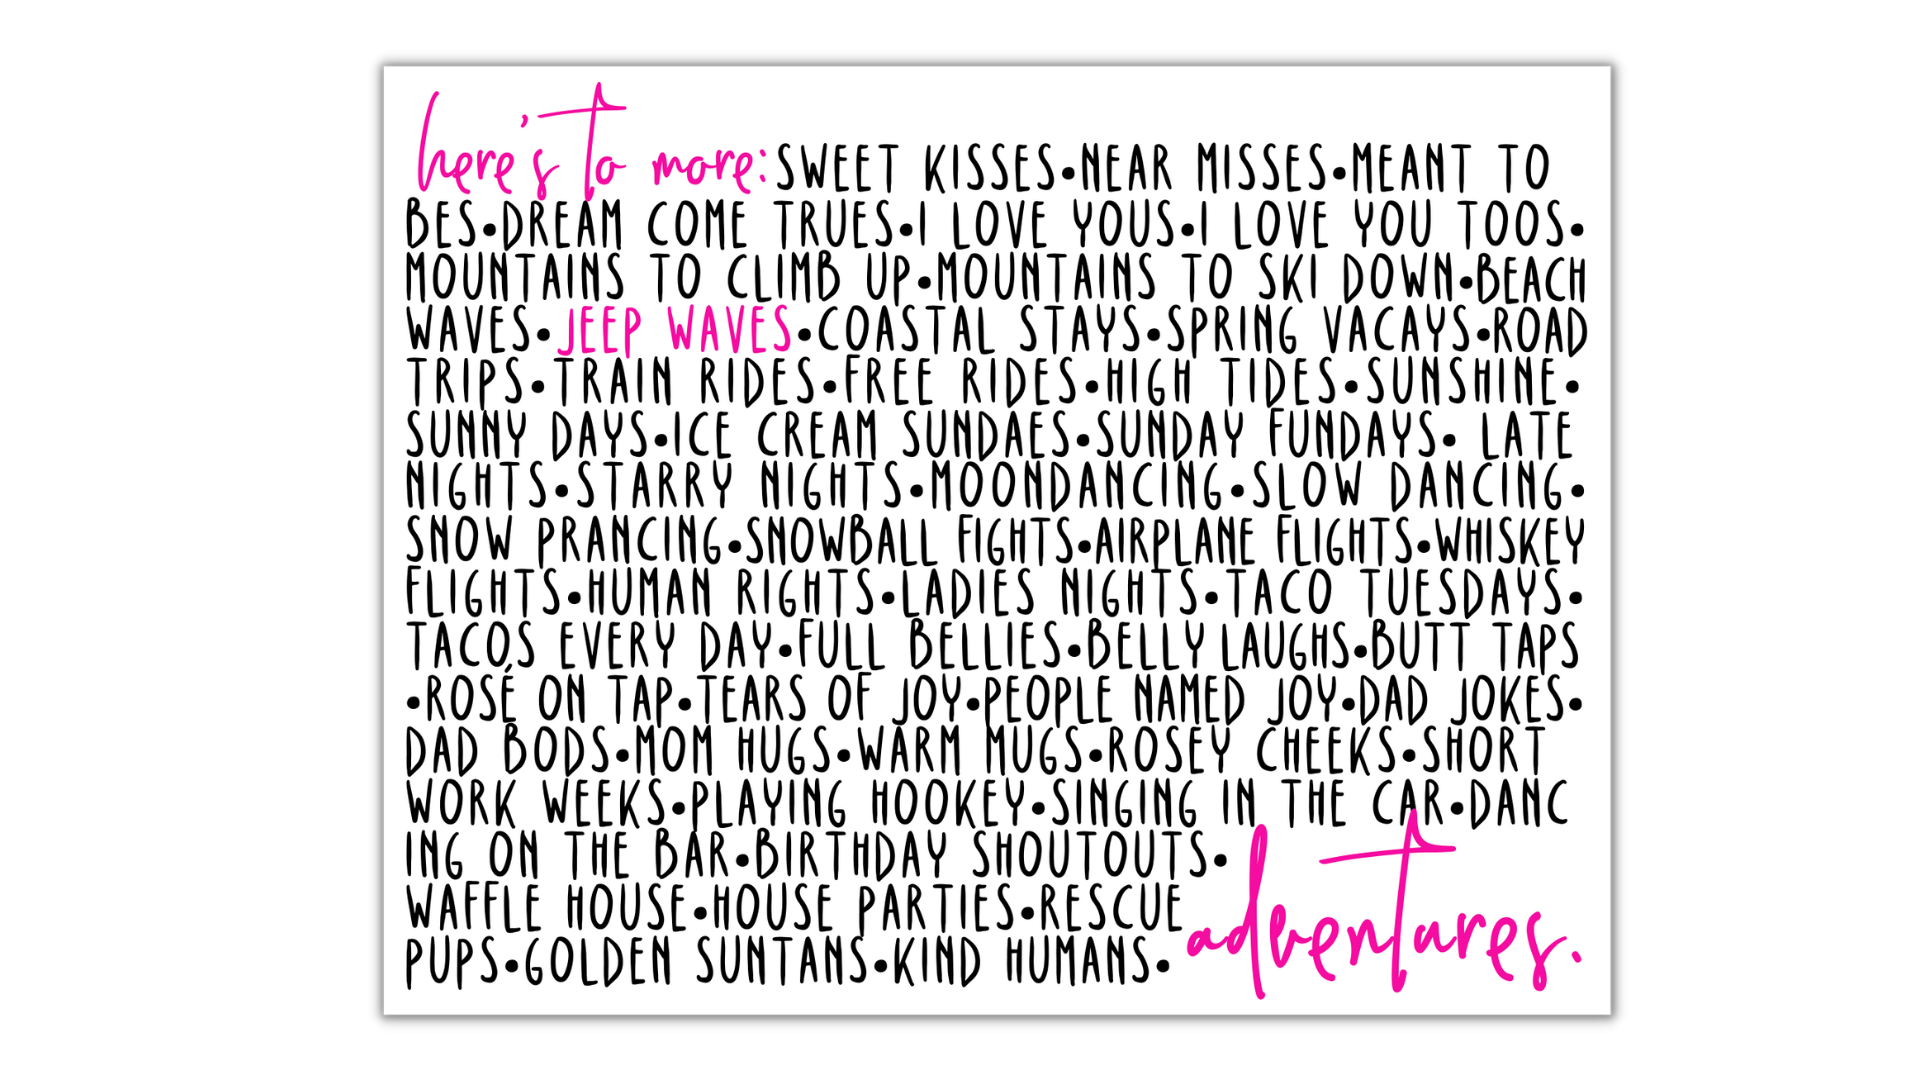 here's to more: SWEET KISSES•NEAR MISSES•MEANT TO
BES•DREAM COME TRUES•I LOVE YOUS•I LOVE YOU TOOS•
MOUNTAINS TO CLIMB UP•MOUNTAINS TO SKI DOWN•BEACH
WAVES•JEEP WAVES•COASTAL STAYS•SPRING VACAYS•ROAD
TRIPS•TRAIN RIDES•FREE RIDES•HIGH TIDES•SUNSHINE•
SUNNY DAYS•ICE CREAM SUNDAES•SUNDAY FUNDAYS• LATE
NIGHTS•STARRY NIGHTS•MOONDANCING•SLOW DANCING•
SNOW PRANCING•SNOWBALL FIGHTS•AIRPLANE FLIGHTS•WHISKEY
FLIGHTS•HUMAN RIGHTS•LADIES NIGHTS•TACO TUESDAYS•
TACOS EVERY DAY•FULL BELLIES•BELLY LAUGHS•BUTT TAPS
•ROSÉ ON TAP•TEARS OF JOY•PEOPLE NAMED JOY•DAD JOKES•
DAD BODS•MOM HUGS•WARM MUGS•ROSEY CHEEKS•SHORT
WORK WEEKS•PLAYING HOOKEY•SINGING IN THE CAR•DANC
ING ON THE BAR•BIRTHDAY SHOUTOUTS•
WAFFLE HOUSE•HOUSE PARTIES•RESCUE
PUPS•GOLDEN SUNTANS•KIND HUMANS• adventures.